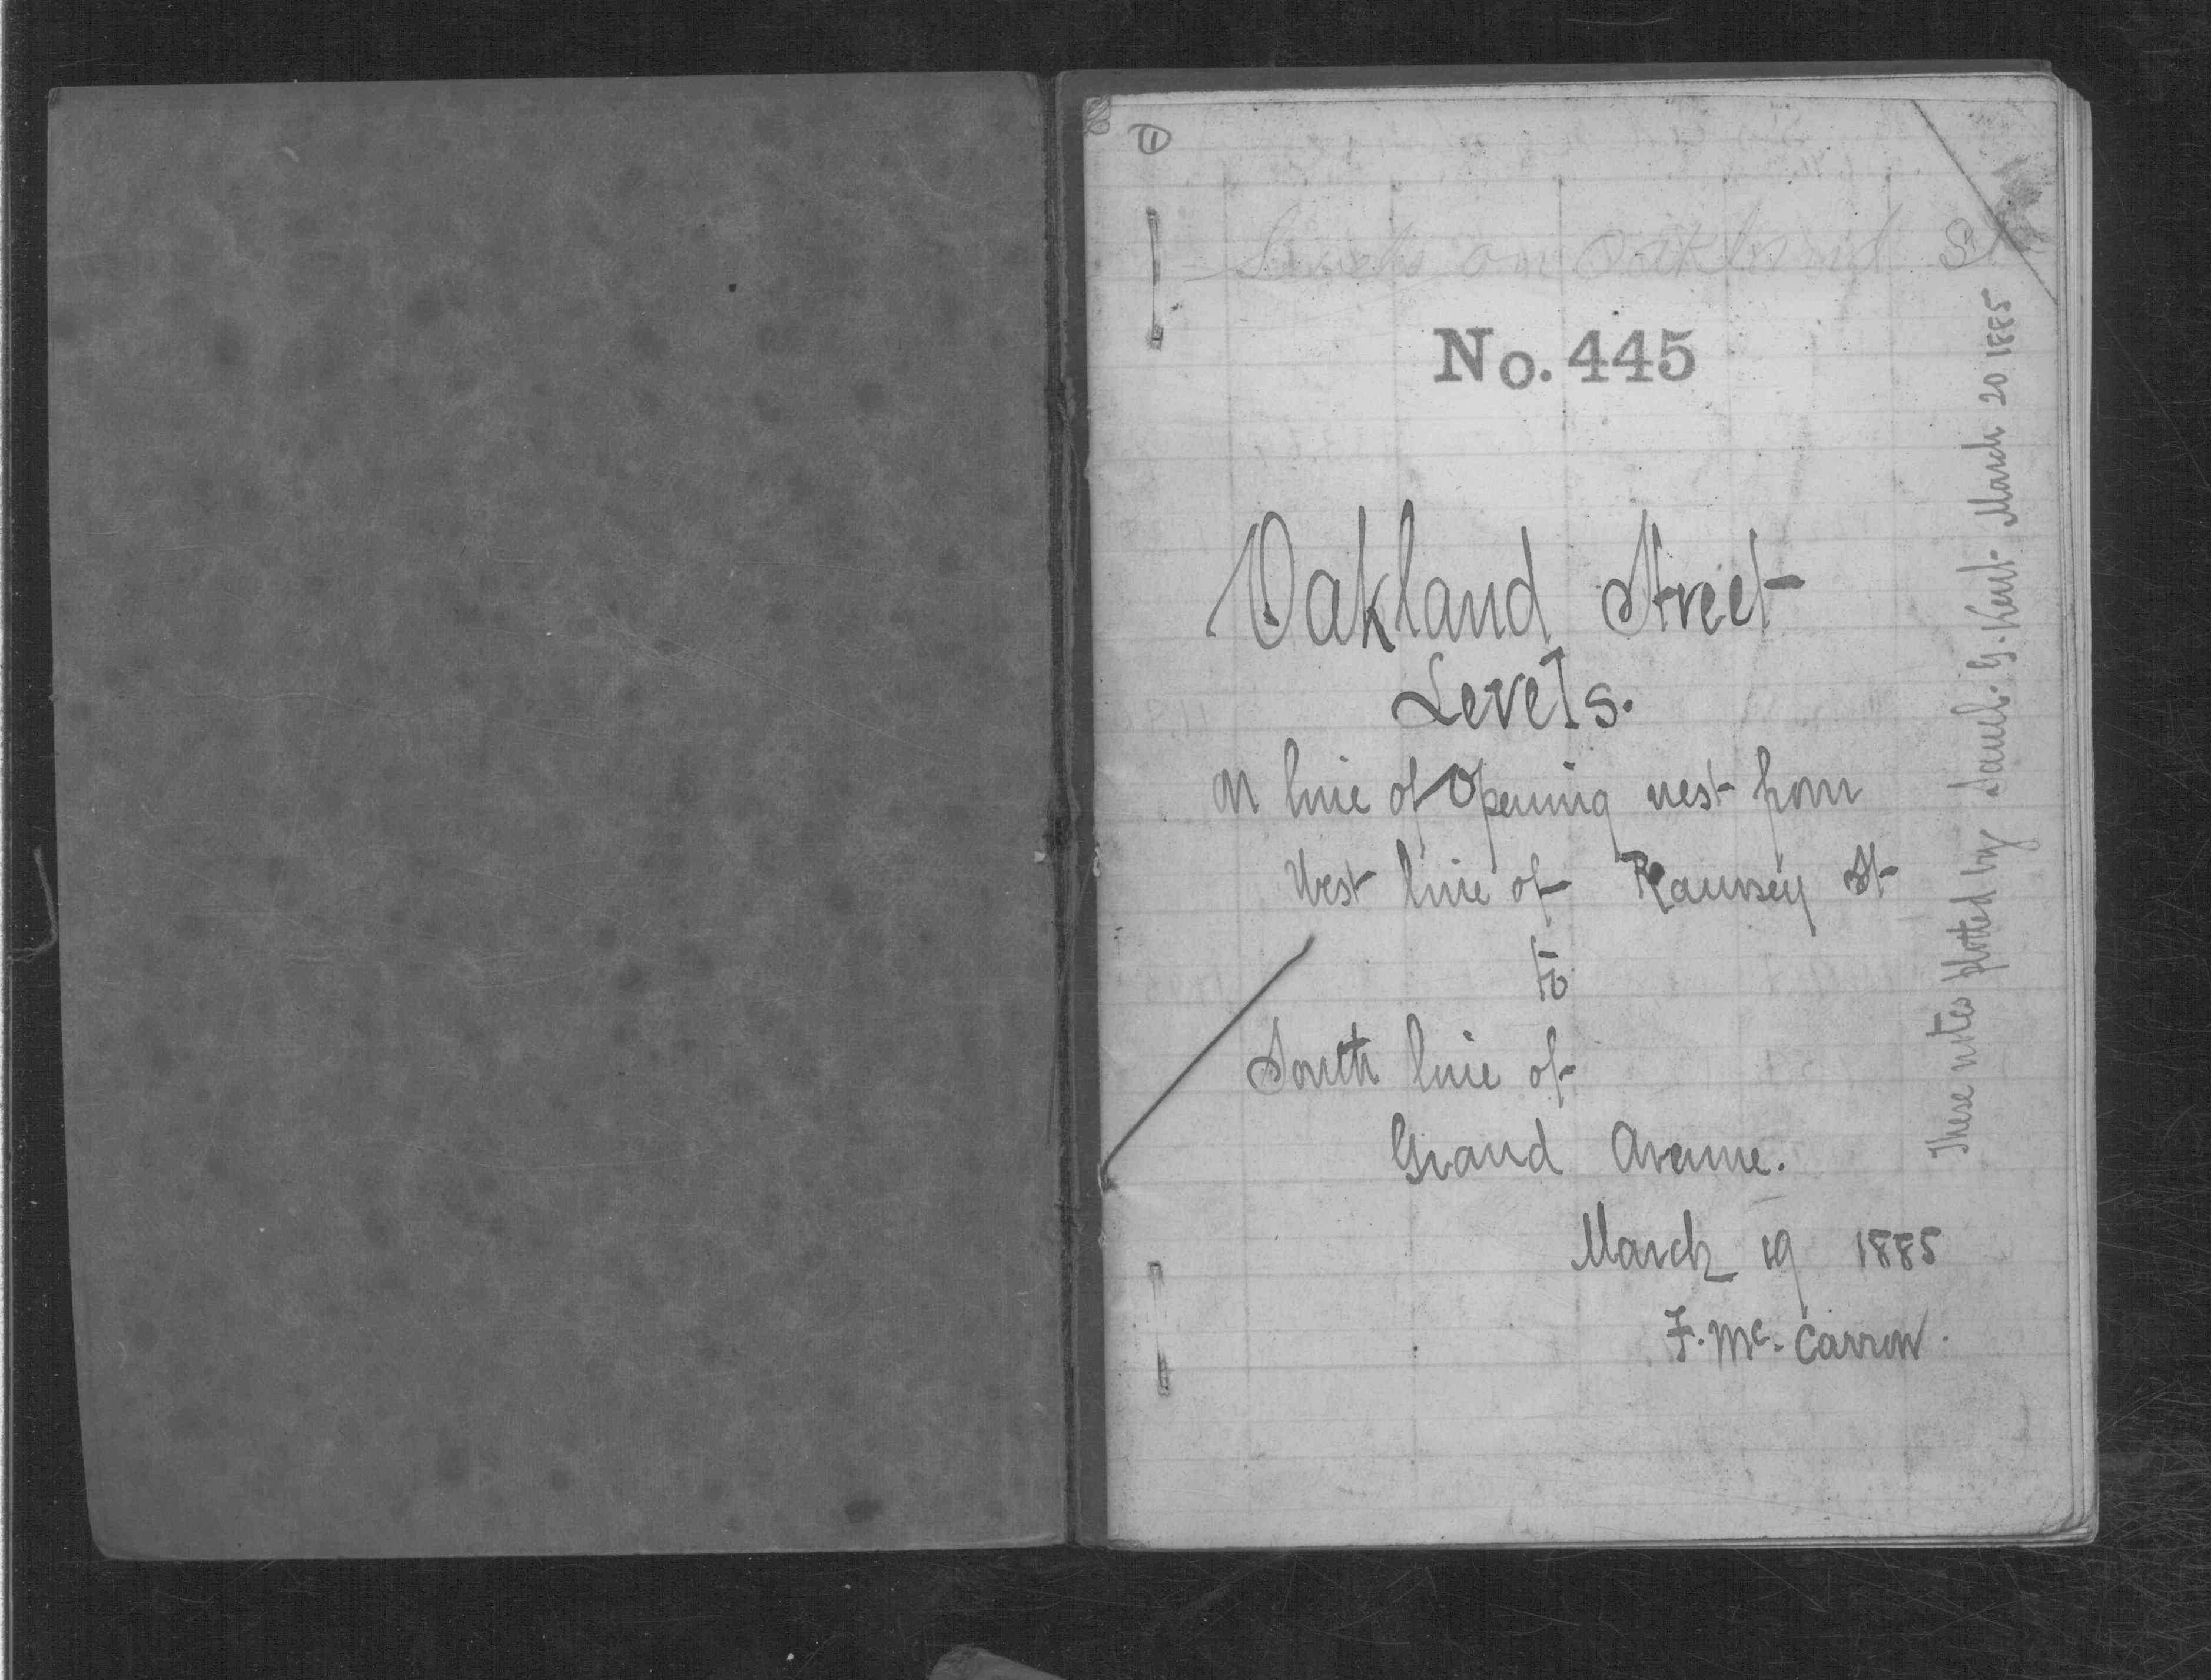 1
Levels on Oakland St
No. 445
Oakland Street
Levels.
on line of Opening west from
West line of Ramsey St
to
South line of
Grand Avenue.
March 19 1885
F. Mc. Carron.
These notes plotted by Saml. G. Kent. March 20 1885